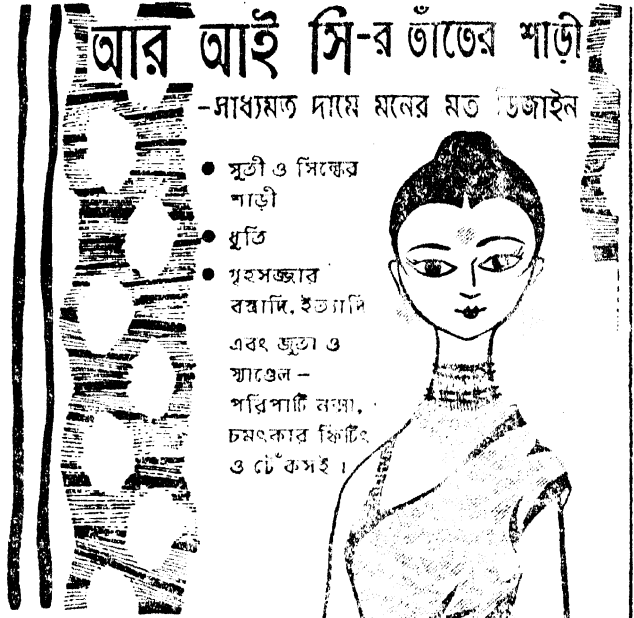 আর আই সি-র তাঁতের শাড়ী
-সাধ্যমত দামে মনের মত ডিজাইন
• সূতী ও সিল্কের
শাড়ী
• ধুতি
• গৃহসজ্জার
বস্ত্রাদি, ইত্যাদি
এবং জুতা ও
স্যাণ্ডেল –
পরিপাটি নক্সা,
চমৎকার ফিটিং
ও টেঁকসই ।